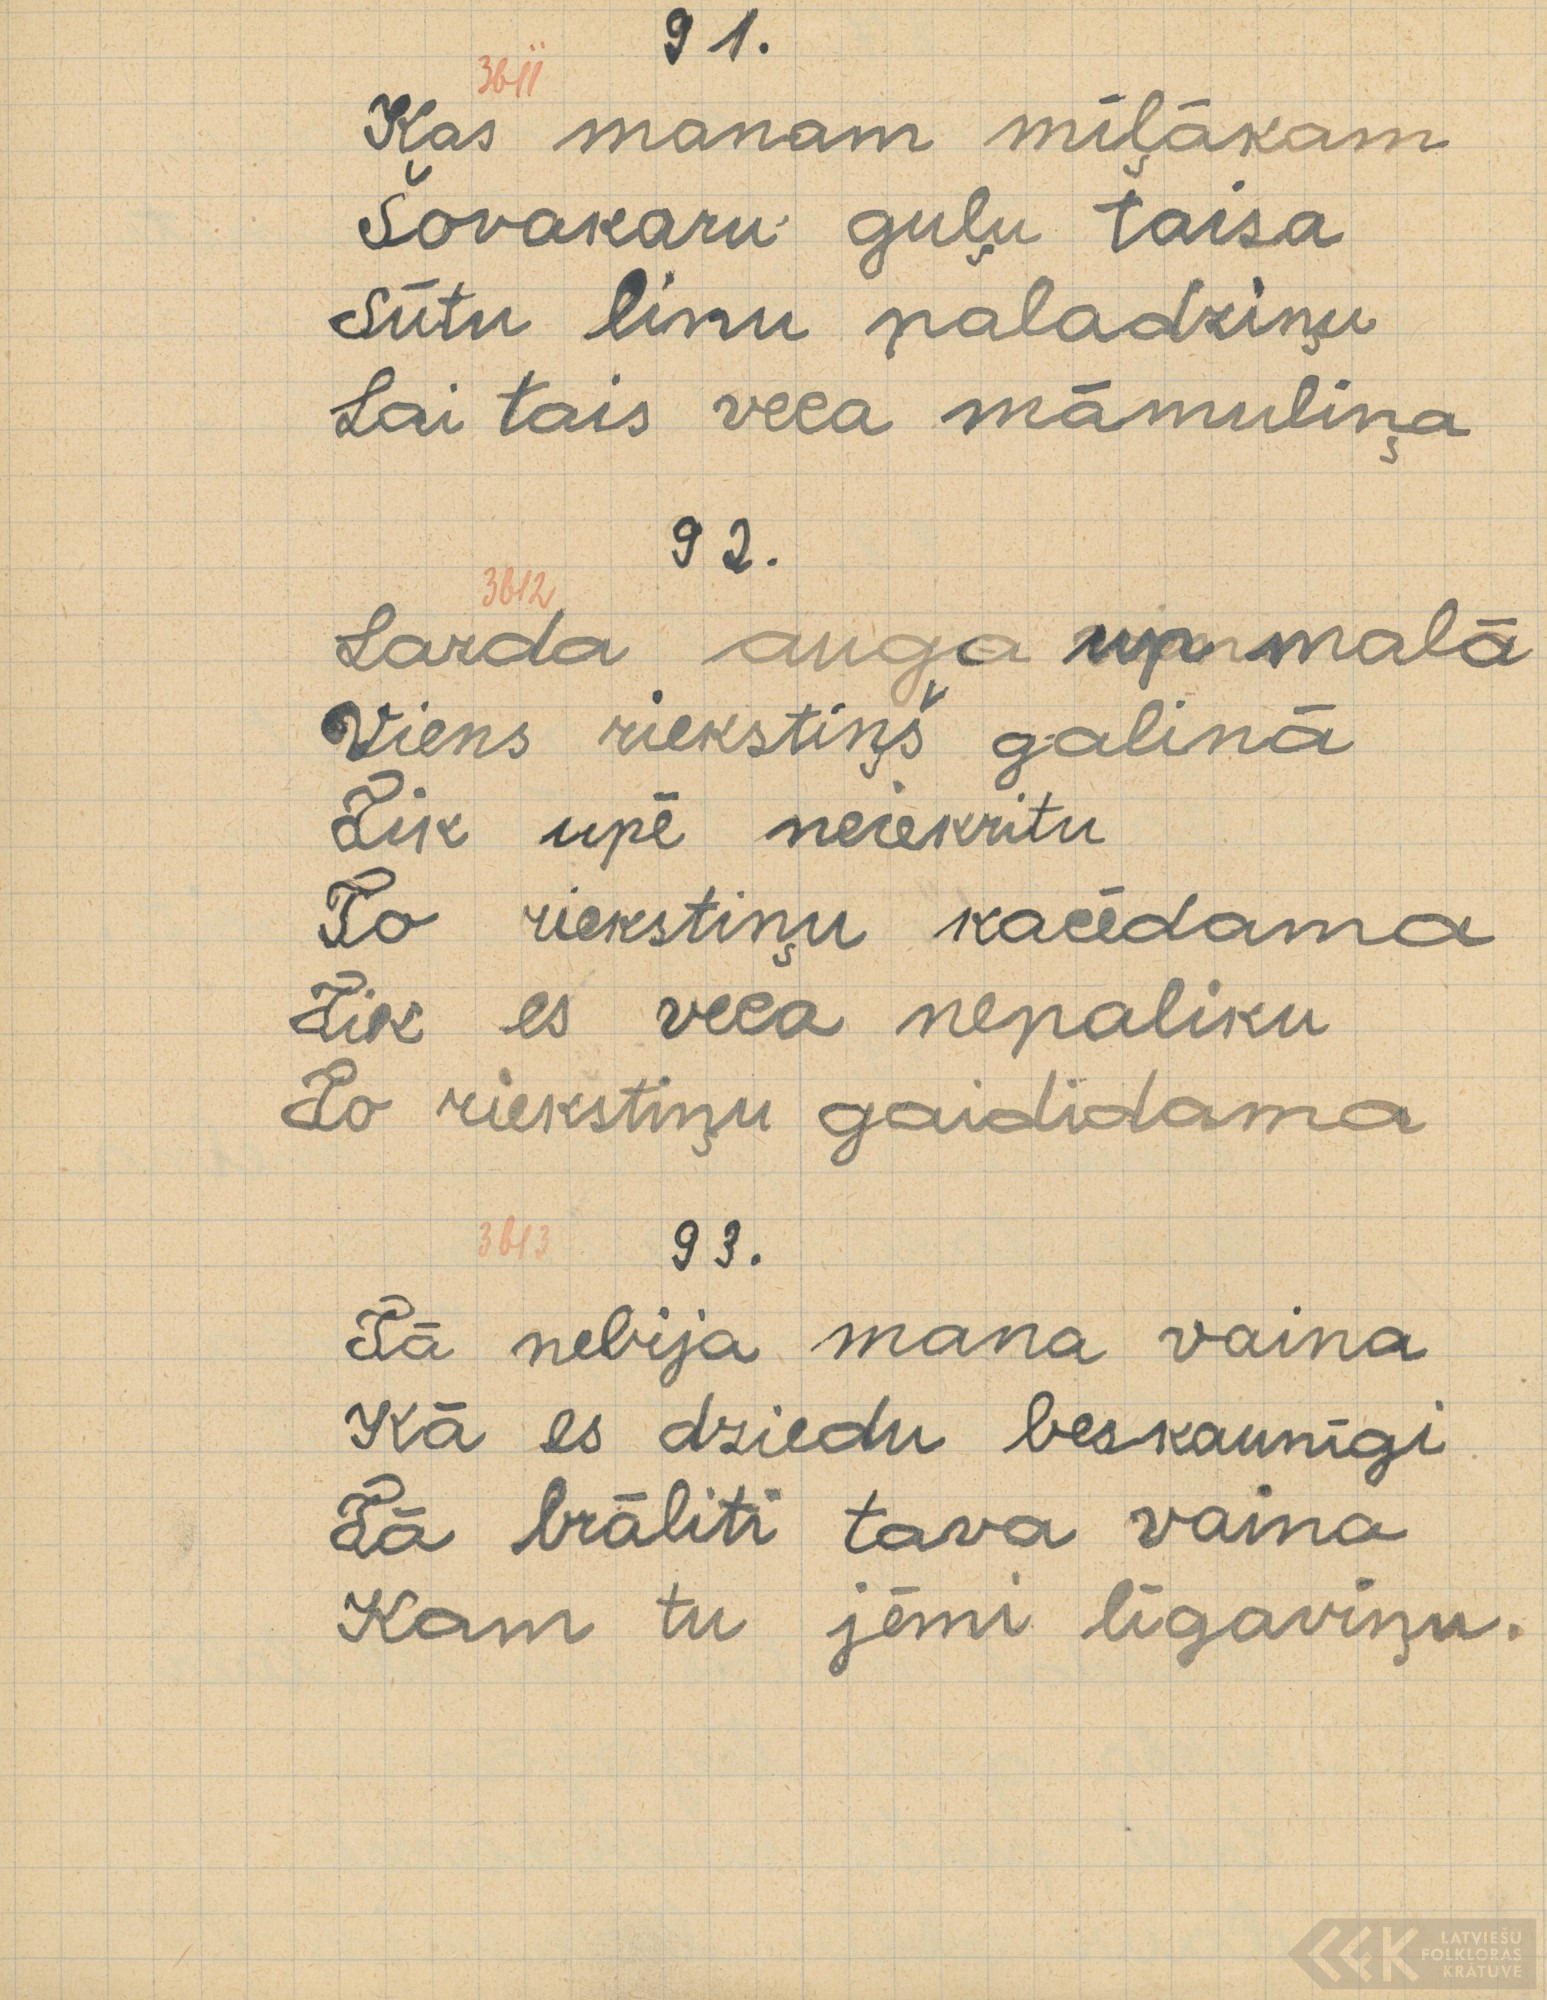 91.
3611
Kas manam mīļākam
Šovakaru guļu taisa
Sūtu linu paladziņu
Lai tais veca māmuliņa
92.
3612
Lazda auga upmalā
Viens riekstiņš galinā
Tik upē neiekritu
To riekstiņu kacēdama
Tik es veca nepaliku
To riekstiņu gaididama
3613 93.
Tā nebija mana vaina
Kā es dziedu beskaunīgi
Tā brāliti tava vaina
Kam tu jēmi līgaviņu.
LATVIEŠU
FOLKLORAS
KRĀTUVE